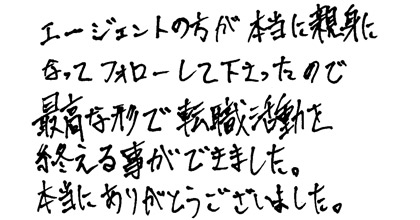 エージェントの方が本当に親身に
なってフォローして下さったので
最高な形で転職活動を
終える事ができました。
本当にありがとうございました。